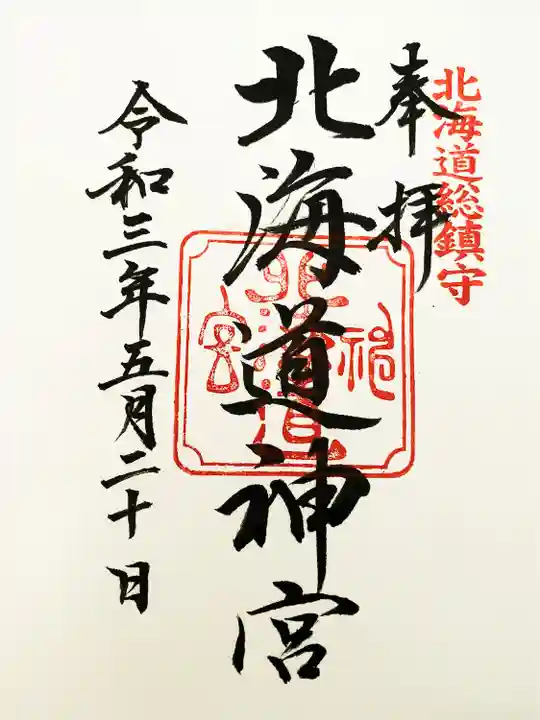 北海道総鎮守
奉拝
北海道神宮
北海道神宮
令和三年五月二十日